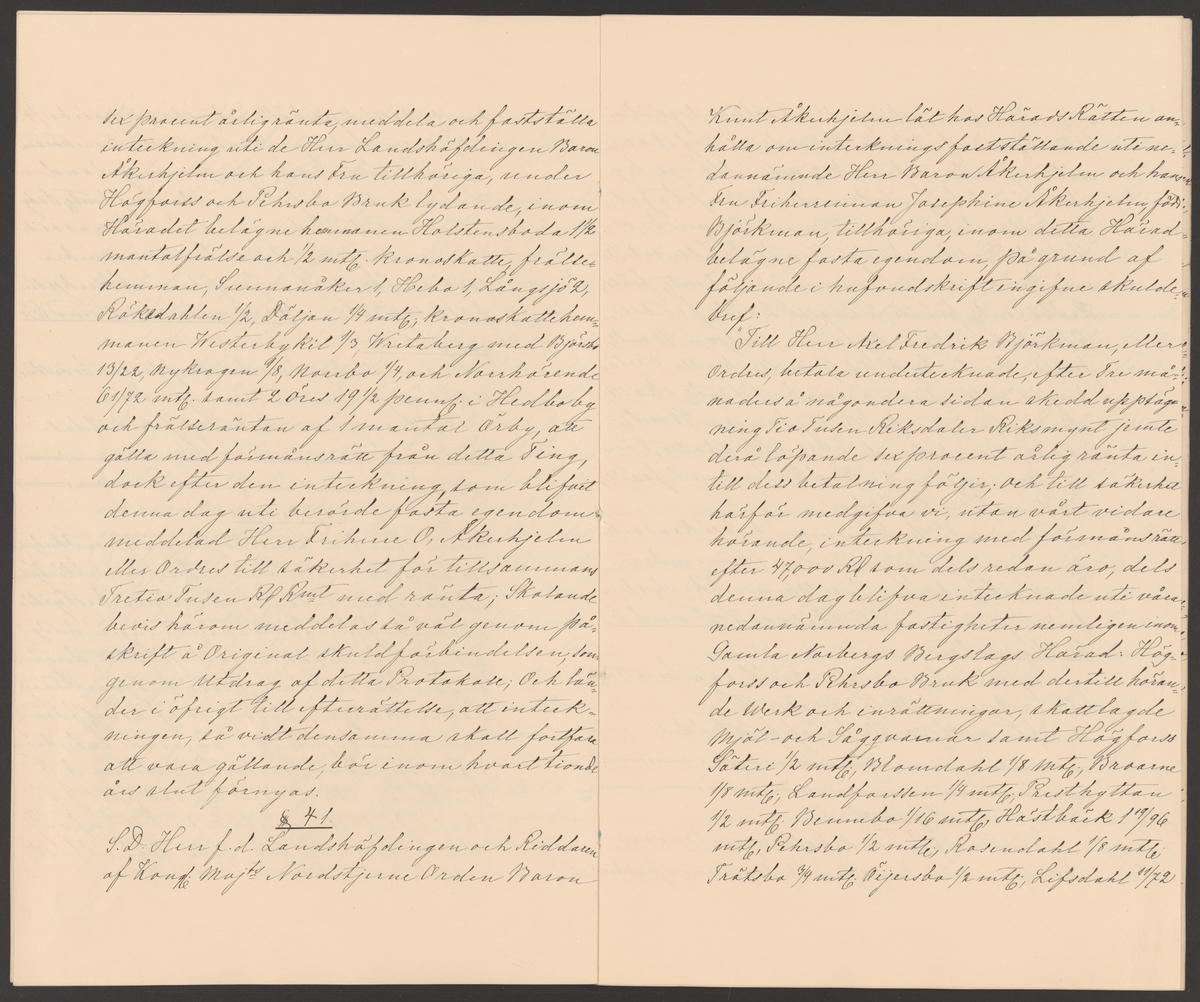 sex procent årlig ränta, meddela och fastställa
inteckning uti de Herr Landshöfdingen Baron
Åkerhjelm och hans Fru tillhöriga, under
Högforss och Pehrsbo Bruk lydande, inom
Häradet belägne hemmanen Holstensboda 1 1/2
mantal frälse och 1/2 mtl. kronoskatte, frälse-
hemman, Sunnanåker 1, Hebo 1, Långsjö 2,
Röksdahlen 1/2, Döljan 1/4 mtl; kronoskattehem-
manen Westerbykil 1/3, Wretaberg med Björsbo
13/22, Nykrogen 1/8, Norrbo 1/4, och Norrhörende
61/72 mtl. samt 2 öres 19 1/2 penng: i Hedbo by
och frälseräntan af 1 mantal Örby, att
gälla med förmånsrätt från detta Ting,
dock efter den inteckning, som blifvit
denna dag uti berörde fasta egendom
meddelad Herr Friherre O. Åkerhjelm
eller Ordres till säkerhet för tillsammans
Tretio Tusen Rd Rmt med ränta; Skolande
bevis härom meddelas så väl genom på-
skrift å Original skuldförbindelsen, som
genom Utdrag af detta Protokoll; Och län-
der i öfrigt till efterrättelse, att inteck-
ningen, så vidt densamma skall fortfara
att vara gällande, bör inom hvart tionde
års slut förnyas.
§ 41.
S. D. Herr f. d. Landshöfdingen och Riddaren
af Kongl: Majts Nordstjerne Orden Baron
Knut Åkerhjelm lät hos Härads Rätten an-
hålla om intecknings fastställande uti ne-
dannämnde Herr Baron Åkerhjelm och hans
Fru Friherrinnan Josephine Åkerhjelm, född
Björkman, tillhöriga, inom detta Härad
belägne fasta egendom, på grund af
följande i hufvudskrift ingifne skulde-
bref:
"Till Herr Axel Fredrik Björkman, eller
Ordres, betala undertecknade, efter Tre må-
nader å någondera sidan skedd uppsäg-
ning Tio Tusen Riksdaler Riksmynt jemte
derå löpande sex procent årlig ränta in-
till dess betalning följer; Och till säkerhet
härför medgifva vi, utan vårt vidare
hörande, inteckning med förmånsrätt
efter 47,000 Rd som dels redan äro, dels
denna dag blifva intecknade uti våra
nedannämnda fastigheter nemligen inom
Gamla Norbergs Bergslags Härad: Hög-
forss och Pehrsbo Bruk med dertill höran-
de Werk och inrättningar, skattlagde
Mjöl- och Sågqvarnar samt Högforss
Säteri 1/2 mtl; Blomdahl 1/8 mtl; Broarne
1/8 mtl; Landforssen 1/4 mtl; Presthyttan
1/2 mtl; Bennebo 1/16 mtl; Hästbäck 1 19/96
mtl, Pehrsbo 1/2 mtl; Rosendahl 1/8 mtl;
Trätsbo 3/4 mtl. Öijersbo 1/2 mtl; Lifsdahl 11/72